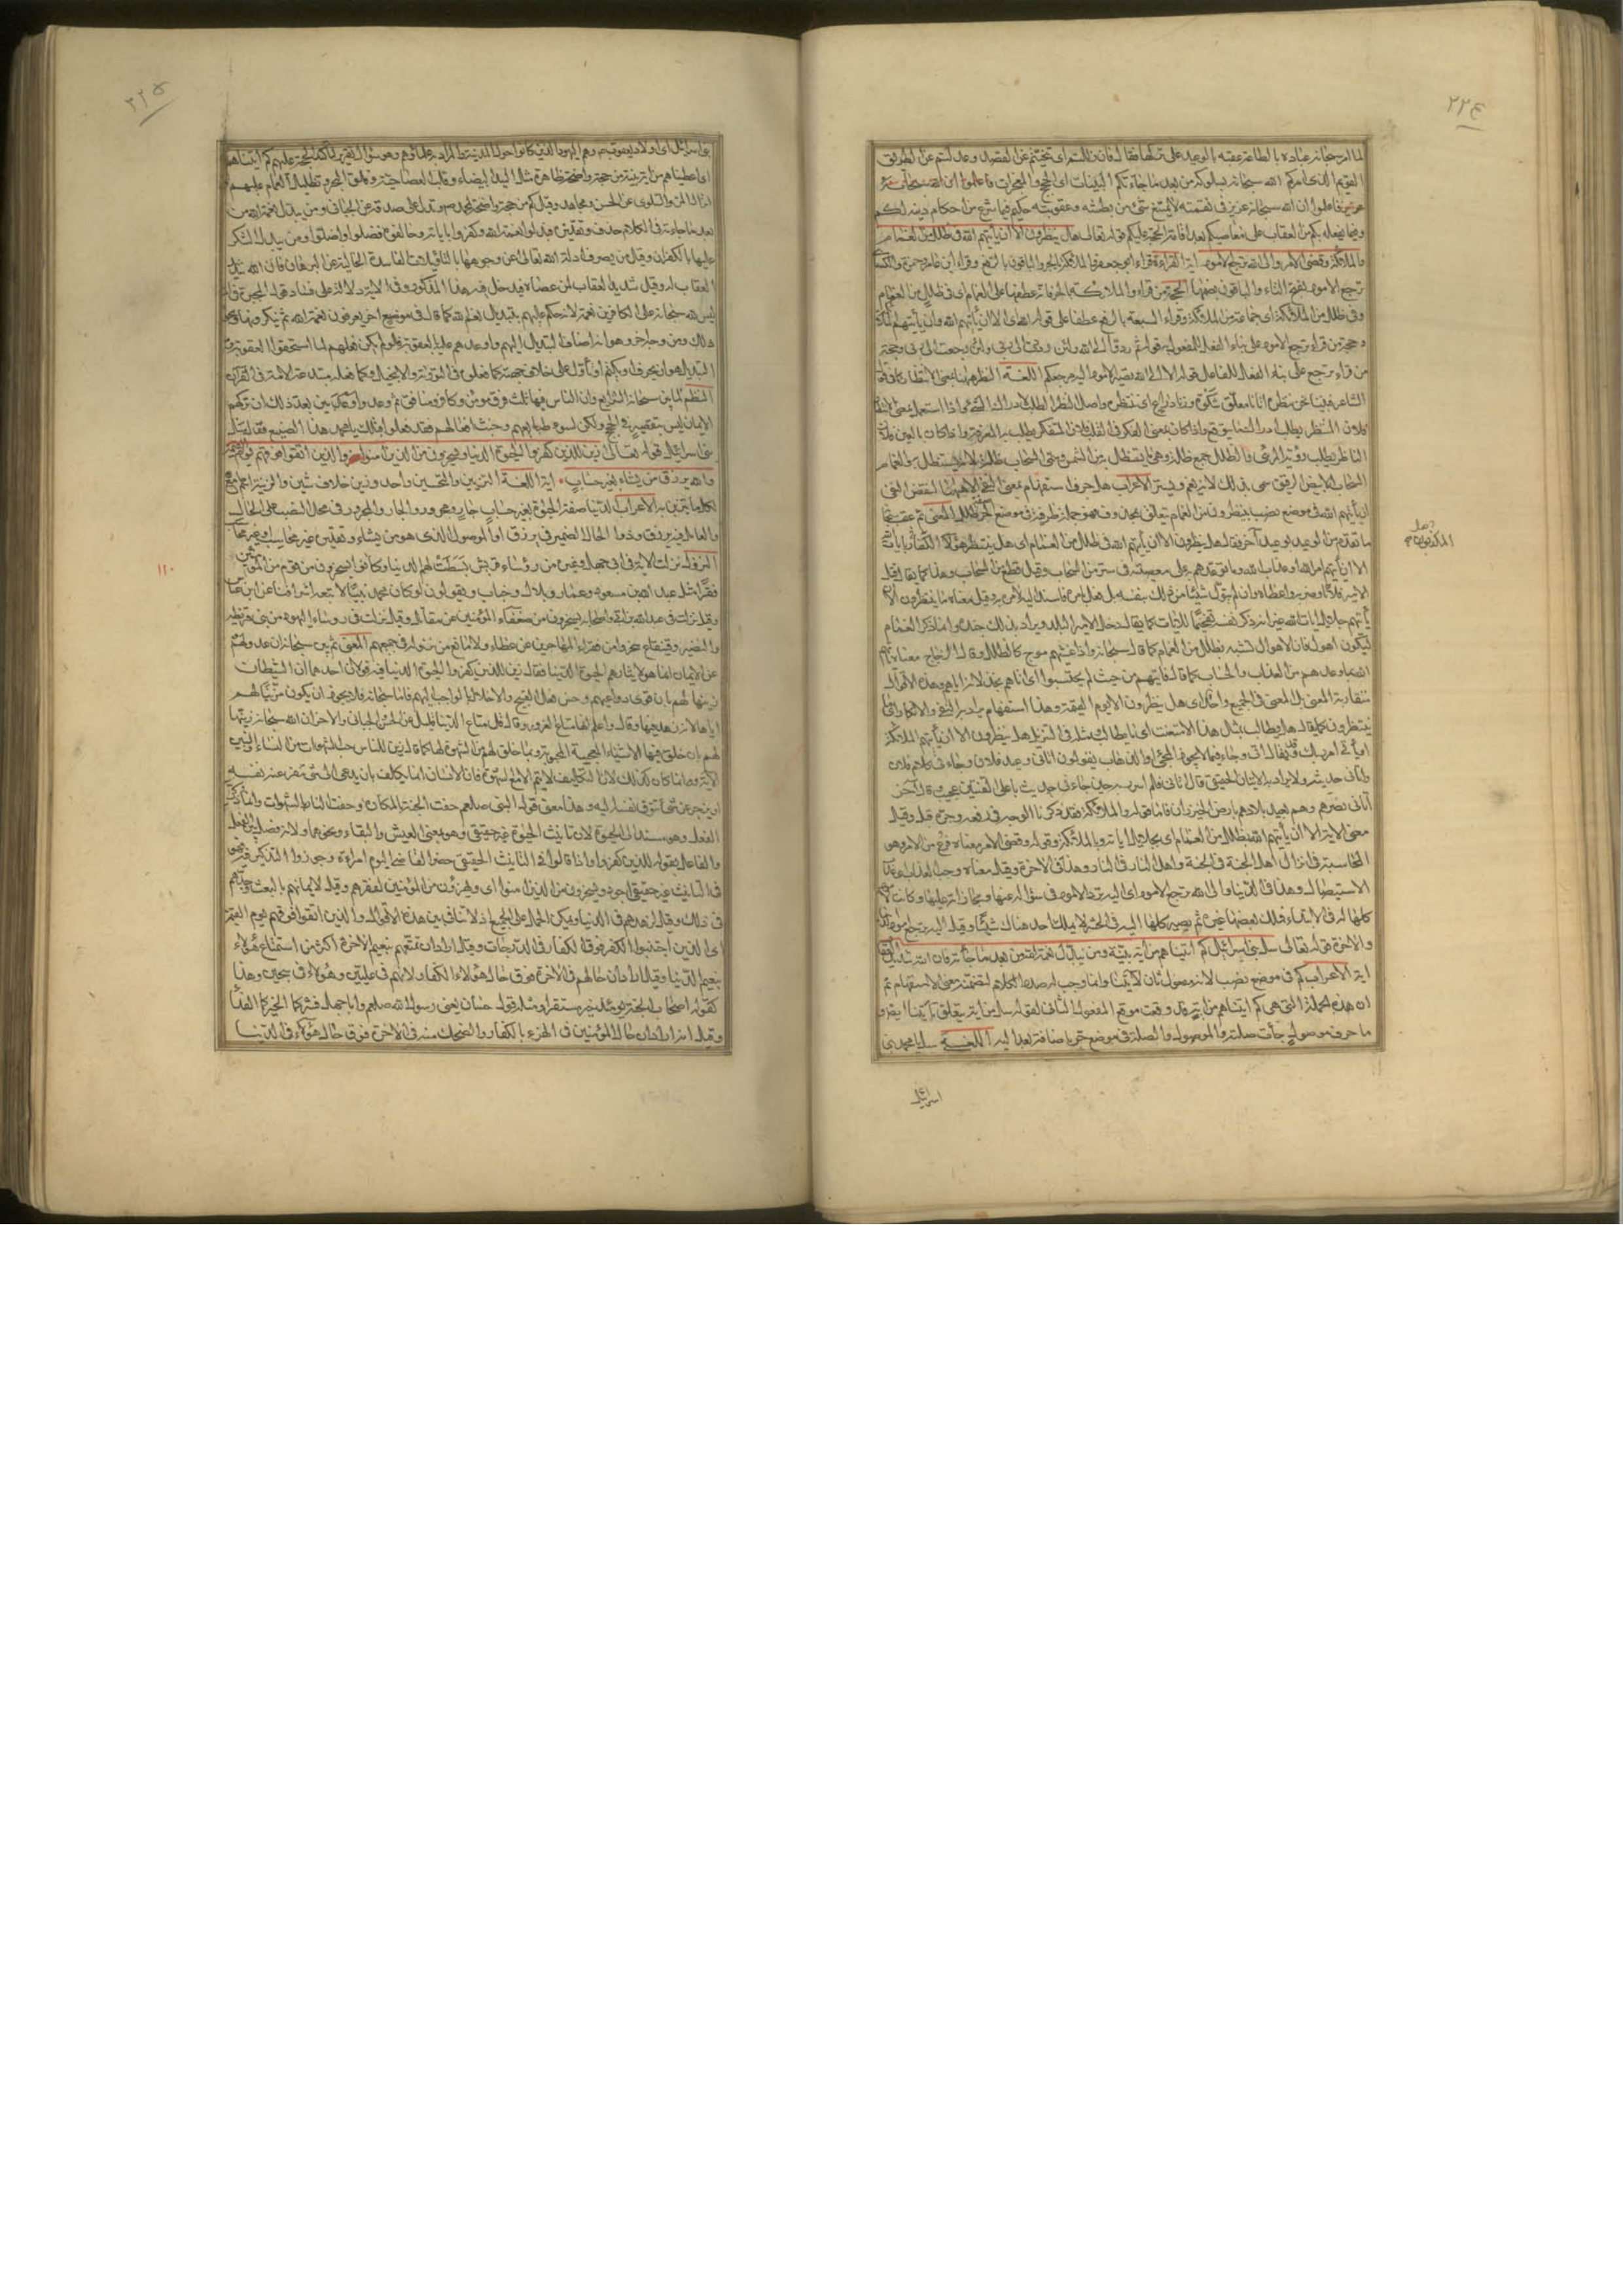 ٢٢٤
لما امر سبحانه عباده بالطاعة عقبه بالوعيد على تركها فقال فان زللتم اى تنحيتم عن القصد وعدلتم عن الطريق
القويم الذى امركم الله سبحانه بسلوكه من بعد ما جاءتكم البينات اى الحجج والمعجزات فاعلموا ان الله
عزيز فاعلموا ان الله سبحانه عزيز فى نقمته لا يمتنع شئ من بطشه وعقوبته حكيم فيما شرع من احكام دينه لكم
وفيما يفعله بكم من العقاب على معاصيكم بعد اقامة الحجة عليكم قوله تعالى هل ينظرون الا ان يأتيهم الله فى ظلل من الغمام
والملائكة وقضى الامر والى الله ترجع الامور اية القراءة قراء ابو جعفر والملائكة بالجر والباقون بالرفع وقراء ابن عامر وحمزة والكسا
ترجع الامور بفتح التاء والباقون بضمها الحجة من قراء والملائكة بالجر فانه عطفها على الغمام اى فى ظلل من الغمام
وفى ظلل من الملائكة اى جماعة من الملائكة وقراءة السبعة بالرفع عطفا على قوله الله اى الا ان يأتيهم الله وان يأتيهم الملائكة
وحجة من قراء ترجع الامور على بناء الفعل للمفعول به قوله ثم ردوا الى الله ولئن رددت الى ربى ولئن رجعت الى ربى وحجة
من قراء ترجع على بناء الفعل للفاعل قوله الا الى الله تصير الامور اليه مرجعكم اللغة النظر هنا بمعنى الانتظار كما فى قول
الشاعر فبينا نحن ننظره اتانا معلق شكوة وزناد راع اى ننتظره واصل النظر الطلب لادراك الشئ واذا استعمل بمعنى
فلان المنتظر يطلب ادراك ما يتوقع واذا كان بمعنى الفكر فى القلب فلان المتفكر يطلب به المعرفة واذا كان بالعين فان
الناظر يطلب رؤية المرئى والظلل جمع ظلة وهى ما يستظل به من الشمس وسمى السحاب ظلة لانه يستظل به والغمام
السحاب الابيض الرقيق سمى بذلك لانه يغم ويستر الاعراب هل حرف استفهام بمعنى النفى لنقض النفى
ان يأتيهم الله فى موضع نصب بينظرون من الغمام يتعلق بمحذوف فهو جملة ظرفية فى موضع الجر صفة ظلل المعنى ثم عقب سبحانه
ما تقدم من الوعيد بوعيد آخر فقال هل ينظرون الا ان يأتيهم الله فى ظلل من الغمام اى هل ينتظر هؤلاء
الا ان يأتيهم امر الله او عذاب الله وما توعدهم به على معصيته فى ستر من السحاب وقيل قطع من السحاب وهذا كما يقال قتل
الامير فلانا وضربه واعطاه وان لم يتول شيئا من ذلك بنفسه بل فعل بامره فاسند اليه لامره به وقيل معناه ما ينتظرون الا ان
يأتيهم جلايل ايات الله غير انه ذكر نفسه تفخيما للايات كما يقال دخل الامير البلد ويراد بذلك جنده وانما ذكر الغمام
ليكون اهول فان الاهوال تشبه بظلل من الغمام كما قال سبحانه واذا غشيهم موج كالظلل وقال الزجاج معناه
الله بما وعدهم من العذاب والحساب كما قال فاتيهم من حيث لم يحتسبوا اى اتاهم بخذلانه اياهم وهذه الاقوال
متقاربة المعنى بل المعنى فى الجميع واحد اى هل ينظرون الا يوم القيمة وهذا استفهام يراد به النفى والانكار
ينتظرون كما يقال هل يطالب بمثل هذا الا متعنت اى ما يطالب ومثله فى التنزيل هل ينظرون الا ان يأتيهم الملائكة
او يأتى امر ربك وقد يقال اتى وجاء فيما لا يجوز عليه المجئ والذهاب يقولون اتانى وعيد فلان وجاءنى كلام فلان
واتانى حديثه ولا يراد به الاتيان الحقيقى قال اتانى فلم اسرر به حين جاءنى حديث باعلى القنتين عجيب وقال آخر
اتانى نصرهم وهم بعيد بلادهم بارض الخيزران فاما قوله والملائكة فقد ذكرنا الوجه فى رفعه وجره قبل وقيل
معنى الاية الا ان يأتيهم الله بظلل من الغمام اى بجلايل اياته وبالملائكة وقوله وقضى الامر معناه فرغ من الامر وهو
المحاسبة وانزال اهل الجنة فى الجنة واهل النار فى النار وهذا فى الاخرة وقيل معناه وجب العذاب اى عذاب
الاستيصال وهذا فى الدنيا والى الله ترجع الامور اى اليه ترد الامور فى سؤاله عنها ومجازاته عليها وكانت
كلها له فى الابتداء فملك بعضها غيره ثم يصير كلها اليه فى الحشر لا يملك احد هناك شيئا وقيل اليه ترجع امور الدنيا
والاخرة قوله تعالى سل بنى اسرائيل كم اتيناهم من اية بينة ومن يبدل نعمة الله من بعد ما جاءته فان الله شديد العقاب
اية الاعراب كم فى موضع نصب لانه مفعول ثان لاتينا وانما وجب له صدر الكلام لتضمنه معنى الاستفهام ثم
ان هذه الجملة التى هى كم اتيناهم من اية قد وقعت موقع المفعول الثانى لقوله سل من اية يتعلق باتينا ايضا و
ما حرف موصول جاءت صلته والموصول والصلة فى موضع جر باضافة بعد اليه اللغة سل يا محمد بنى
اسرائيل
٢٢٥
بنى اسرائيل اى اولاد يعقوب وهم اليهود الذين كانوا حول المدينة والمراد به علماؤهم وهو سؤال تقرير لتأكيد الحجة عليهم كم اتيناهم
اى اعطيناهم من اية بينة من حجة واضحة ظاهرة مثل اليد البيضاء وقلب العصا حية وفلق البحر وتظليل الغمام عليهم
انزال المن والسلوى عن الحسن ومجاهد وقيل كم من حجة واضحة لمحمد تدل على صدقه عن الجبائى ومن يبدل نعمة الله من
بعد ما جاءته فى الكلام حذف وتقديره فبدلوا نعمة الله وكفروا باياته وخالفوه فضلوا واضلوا ومن يبدل الشكر
عليها بالكفران وقيل من يصرف ادلة الله تعالى عن وجوهها بالتأويلات الفاسدة الخالية عن البرهان فان الله شديد
العقاب له وقيل شديد العقاب لمن عصاه فيدخل فيه هذا المذكور وفى الاية دلالة على فساد قول المجبرة
ليس لله سبحانه على الكافرين نعمة لانه حكم عليهم بتبديل نعم الله كما قال فى موضع اخر يعرفون نعمة الله ثم ينكرونها
ذلك ومن وجه اخر وهو انه اضاف التبديل اليهم واوعدهم عليه بالعقوبة ولو لم يكن فعلهم لما استحقوا العقوبة و
التبديل هو ان يحرف او يكتم او يتأول على خلاف جهته كما فعلوه فى التورية والانجيل وكما فعله مبتدعة الامة فى القرآن
النظم لما بين سبحانه الشرايع وان الناس فيها ثلث فرق مؤمن وكافر ومنافق ثم وعد واوعد بين بعد ذلك ان تركهم
الايمان ليس بتقصير فى الحجج ولكن لسوء طباعهم وخبث افعالهم فقد فعلوا قبلك يا محمد هذا الصنيع فقال سل
بنى اسرائيل قوله تعالى زين للذين كفروا الحيوة الدنيا ويسخرون من الذين امنوا والذين اتقوا فوقهم يوم القيمة
والله يرزق من يشاء بغير حساب اية اللغة التزيين والتحسين واحد وزين خلاف شين والزينة
لكل ما يتزين به الاعراب الدنيا صفة الحيوة بغير حساب جار ومجرور والجار والمجرور فى محل النصب على الحال
والعامل فيه يرزق وذو الحال الضمير فى يرزق او الموصول الذى هو من يشاء وتقديره غير محاسب او غير محاسبا
النزول نزلت الاية فى ابى جهل وغيره من رؤساء قريش بسطت لهم الدنيا وكانوا يسخرون من قوم من المؤمنين
فقراء مثل عبد الله بن مسعود وعمار وبلال وخباب ويقولون لو كان محمد نبيا لاتبعه اشرافنا عن ابن عباس
وقيل نزلت فى عبد الله بن ابى واصحابه يسخرون من ضعفاء المؤمنين عن مقاتل وقيل نزلت فى رؤساء اليهود من بنى قريظة
والنضير وقينقاع سخروا من فقراء المهاجرين عن عطاء ولا مانع من نزوله فى جميعهم المعنى ثم بين سبحانه ان عدولهم
عن الايمان انما هو لايثارهم الحيوة الدنيا فقال زين للذين كفروا الحيوة الدنيا فيه قولان احدهما ان الشيطان
زينها لهم بان قوى دواعيهم وحسن فعل القبيح والاخلال بالواجب اليهم فاما الله سبحانه فلا يجوز ان يكون مزينا لهم
اياها لانه زهد فيها وقال واعلم انها متاع الغرور وقال قل متاع الدنيا قليل عن الحسن والجبائى والاخر ان الله سبحانه زينها
لهم بان خلق فيها الاشياء العجيبة المحبوبة وبما خلق لهم من الشهوة لها كما قال زين للناس حب الشهوات من النساء والبنين
الاية وانما كان كذلك لان التكليف لا يتم الا مع الشهوة فان الانسان انما يكلف بان يدعى الى شئ تنفر عنه نفسه
او يزجر عن شئ تتوق نفسه اليه وهذا معنى قوله النبى صلعم حفت الجنة بالمكاره وحفت النار بالشهوات وانما ذكر
الفعل وهو مسند الى الحيوة لان تأنيث الحيوة غير حقيقى وهو بمعنى العيش والبقاء ونحوهما ولانه فصل بين الفعل
والفاعل بقوله للذين كفروا واذا قالوا فى التأنيث الحقيقى حضر القاضى اليوم امراءة وجوزوا التذكير فيه فهو
فى التأنيث غير حقيقى اجود ويسخرون من الذين امنوا اى ويهزؤن من المؤمنين لفقرهم وقيل لايمانهم بالبعث وجدهم
فى ذلك وقيل لزهدهم فى الدنيا ويمكن الحمل على الجميع اذ لا تنافى بين هذه الاقوال والذين اتقوا فوقهم يوم القيمة
اى الذين اجتنبوا الكفر فوق الكفار فى الدرجات وقيل اراد ان تمتعهم بنعيم الاخرة اكثر من استمتاع هؤلاء
بنعيم الدنيا وقيل اراد ان حالهم فى الاخرة فوق حال هؤلاء الكفار لانهم فى عليين وهؤلاء فى سجين وهذا
كقوله اصحاب الجنة يومئذ خير مستقرا ومثله قول حسان يعنى رسول الله صلعم وابا جهل فشركما لخيركما الفداء
وقيل انه اراد ان حال المؤمنين فى الهزء بالكفار والضحك منهم فى الاخرة فوق حال هؤلاء فى الدنيا
١١٠